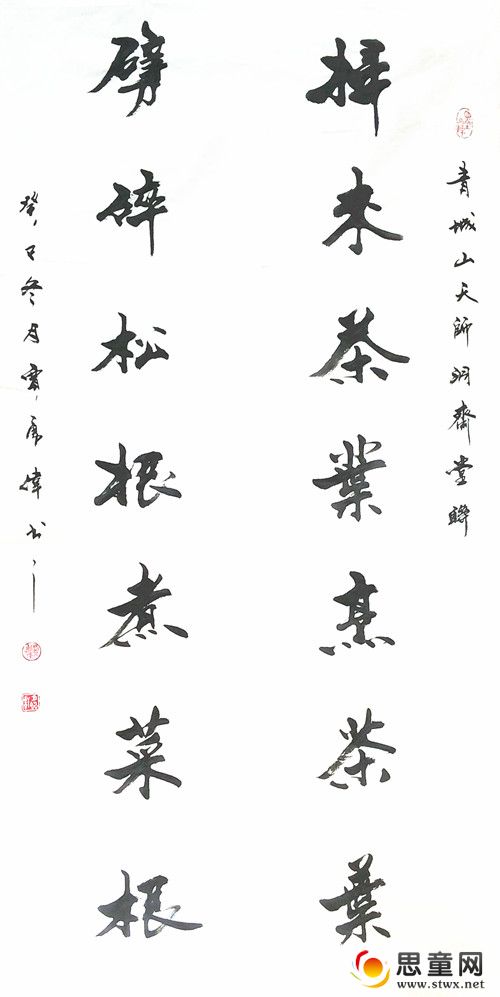 青城山天師洞齋堂聯
掃来茶葉烹茶葉
劈碎松根煮菜根
癸巳冬月 書
思童网
www.stwx.net